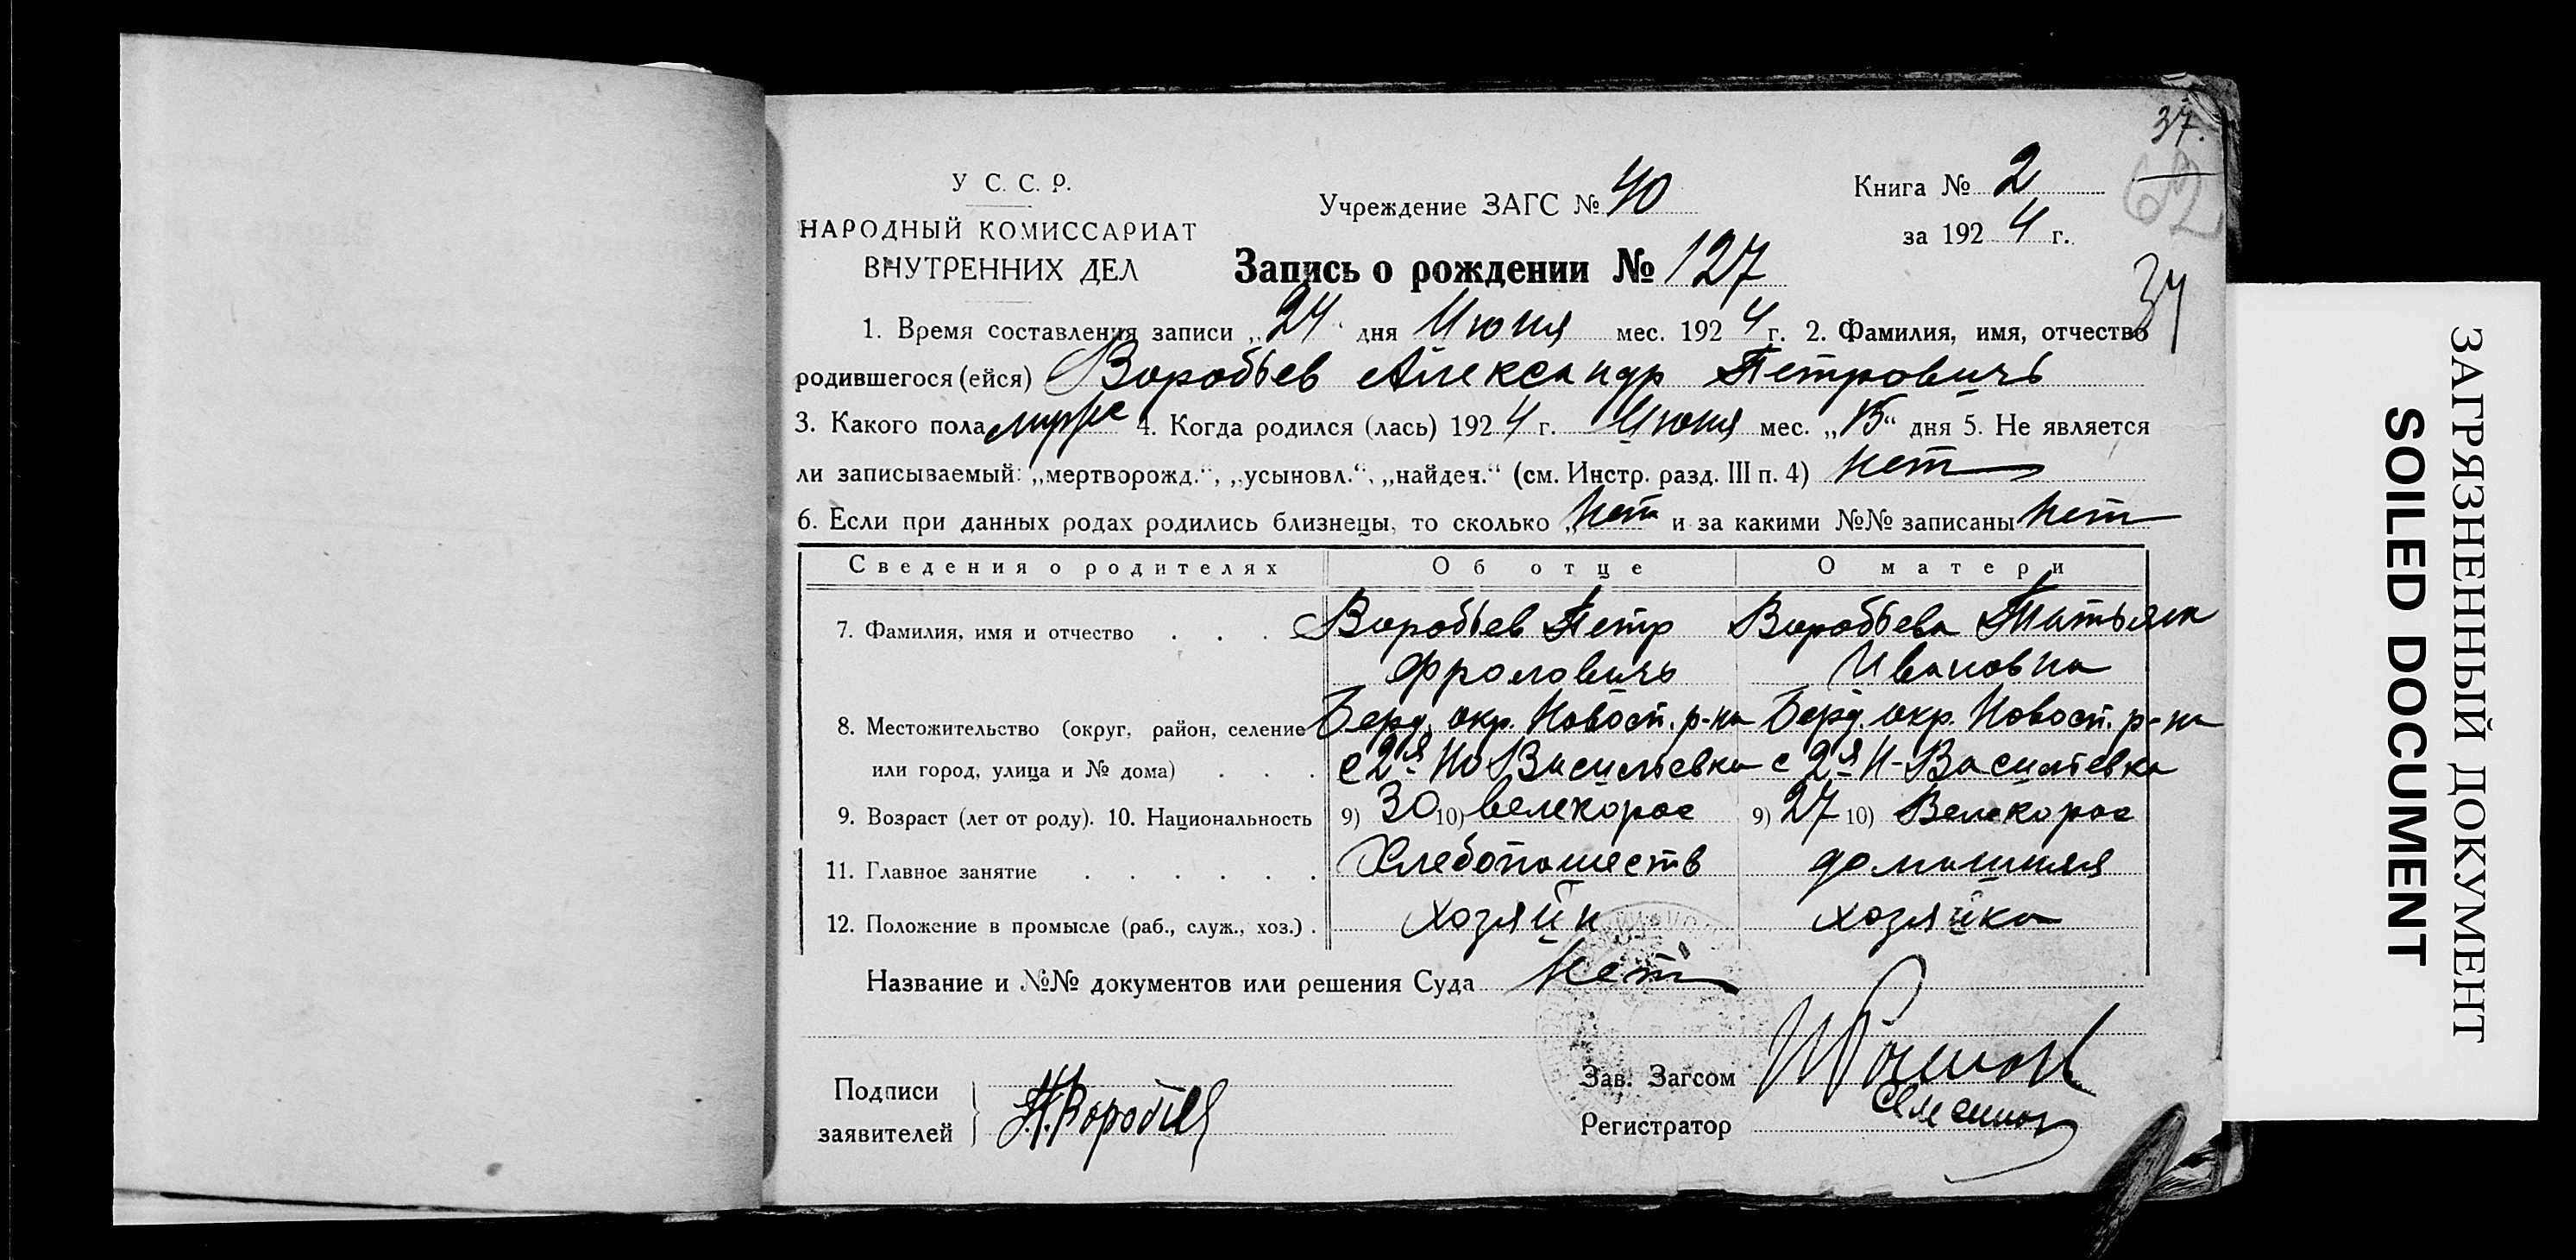 37.
62
У С. С. Р.
НАРОДНЫЙ КОМИССАРИАТ
ВНУТРЕННИХ ДЕЛ
Учреждение ЗАГС № 40
Книга № 2
за 1924 г.
34
Запись о рождении № 127
1. Время составления записи „24“ дня Июня мес. 1924 г. 2. Фамилия, имя, отчество
родившегося (ейся) Воробьев Александр Петровичъ
3. Какого пола 4. Когда родился (лась) 1924 г. Июня мес. „15“ дня 5. Не является
ли записываемый: „мертворожд.“, „усыновл.“, „найден.“ (см. Инстр. разд. III п. 4) нет
6. Если при данных родах родились близнецы, то сколько нет и за какими №№ записаны нет
Сведения о родителях Об отце О матери
7. Фамилия, имя и отчество . . . Воробьев Петр Воробьева Татьяна
Фроловичъ Ивановна
8. Местожительство (округ, район, селение Берд. окр. Новосп. р-на Берд. окр. Новосп. р-на
или город, улица и № дома) . . . с 2я Но Васильевка с 2я Н-Васильевка
9. Возраст (лет от роду). 10. Национальность 9) 30 10) велекорос 9) 27 10) Велекорос
11. Главное занятие . . . . . . Хлебопашеств домашняя
12. Положение в промысле (раб., служ., хоз.) . хозяйн хозяйка
Название и №№ документов или решения Суда нет
Подписи
заявителей
П. Воробьев
Зав. Загсом
Регистратор
ЗАГРЯЗНЕННЫЙ ДОКУМЕНТ
SOILED DOCUMENT